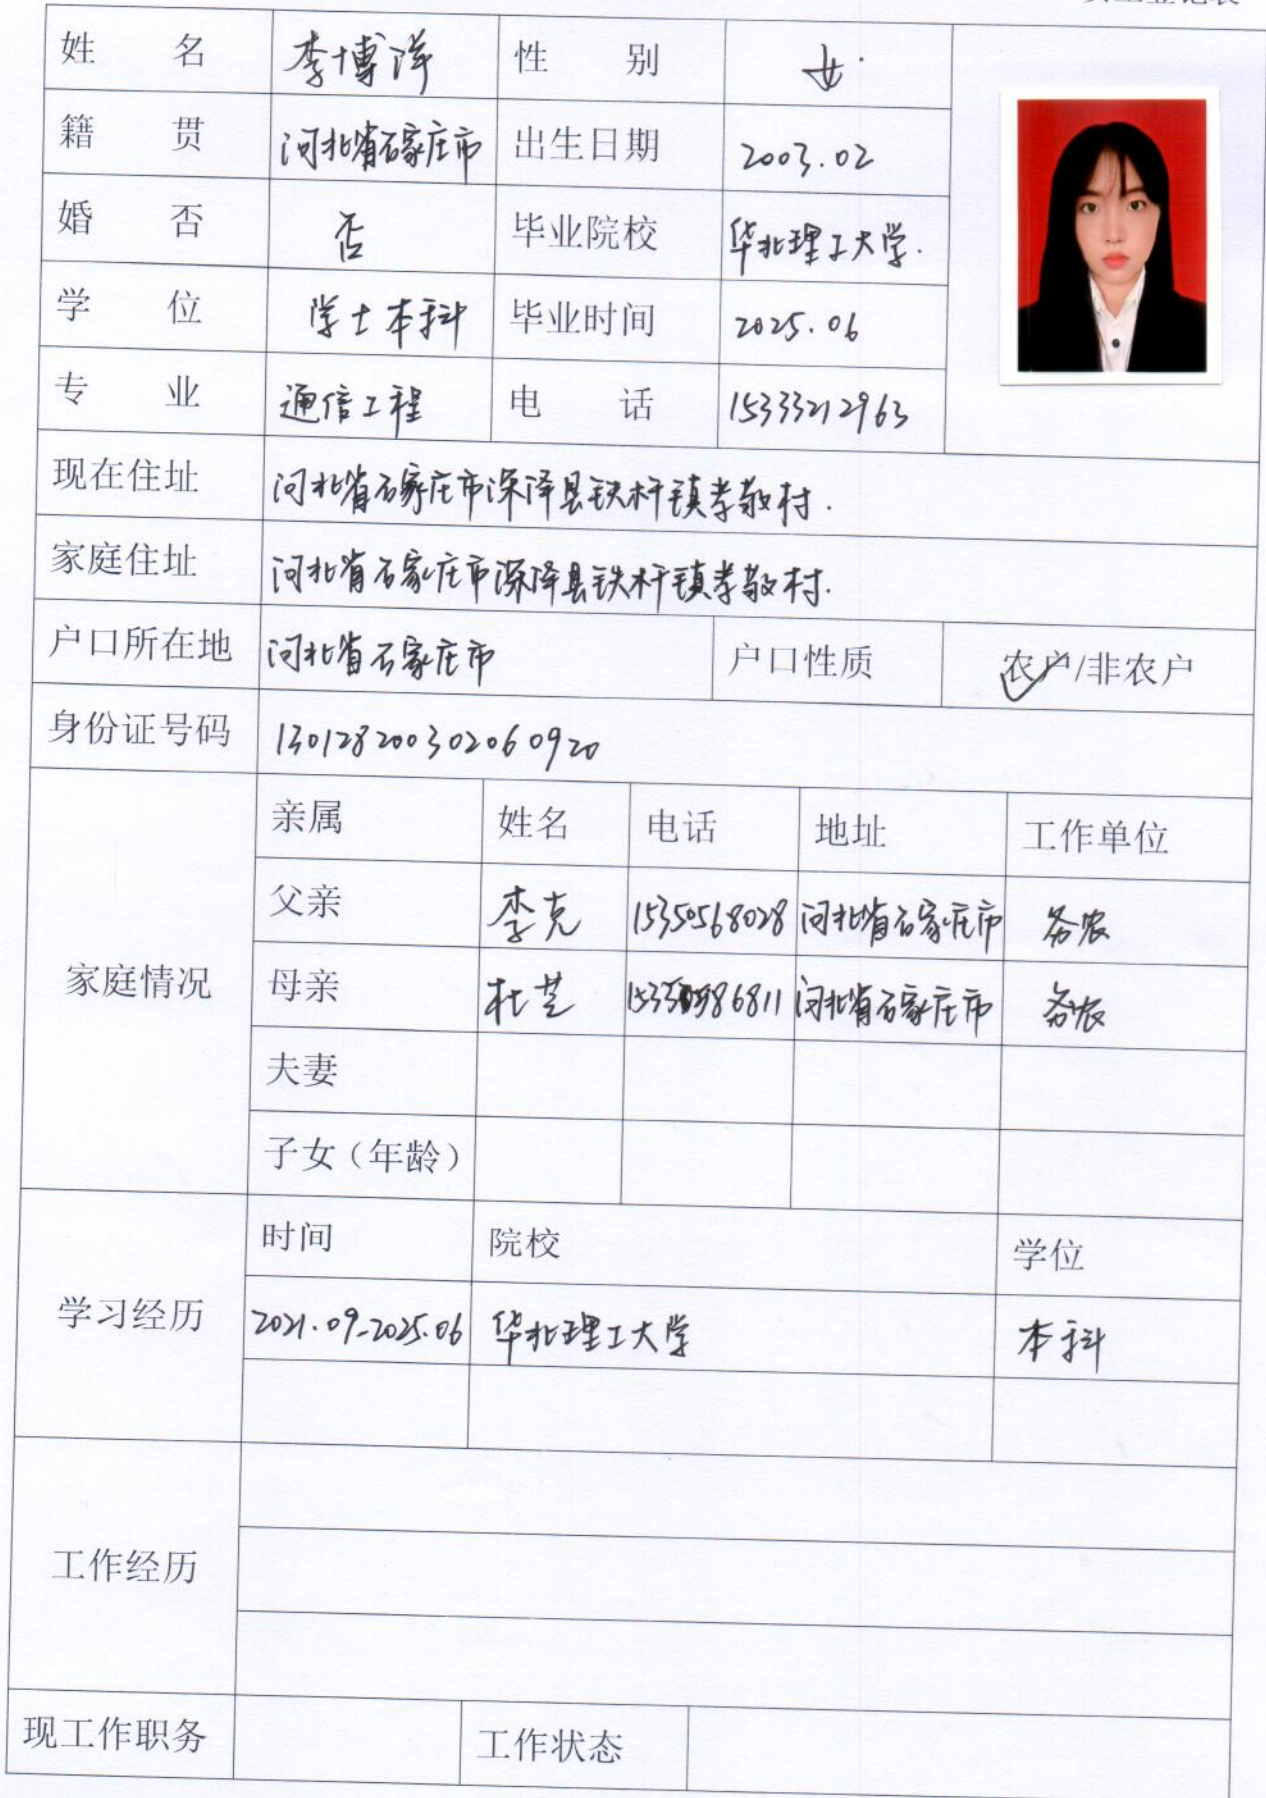 姓 名 李博洋 性 别 女
籍 贯 河北省石家庄市 出生日期 2003.02
婚 否 否 毕业院校 华北理工大学.
学 位 学士本科 毕业时间 2025.06
专 业 通信工程 电 话 15333212963
现在住址 河北省石家庄市深泽县铁杆镇孝敬村.
家庭住址 河北省石家庄市深泽县铁杆镇孝敬村.
户口所在地 河北省石家庄市 户口性质 农户/非农户
身份证号码 130128200302060920
亲属 姓名 电话 地址 工作单位
父亲 李克 15350568028 河北省石家庄市 务农
家庭情况 母亲 杜芝 河北省石家庄市 务农
夫妻
子女（年龄）
时间 院校 学位
学习经历 2021.09-2025.06 华北理工大学 本科
工作经历
现工作职务 工作状态